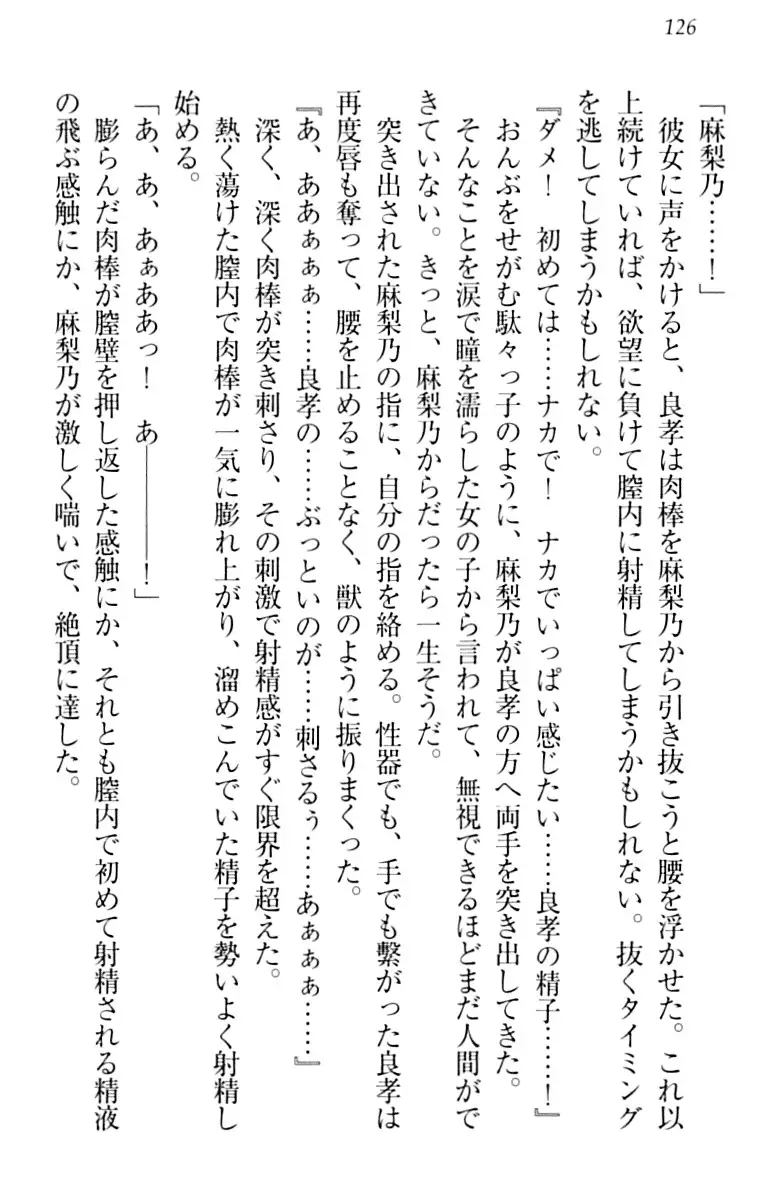 126
「麻梨乃……！」
彼女に声をかけると、良孝は肉棒を麻梨乃から引き抜こうと腰を浮かせた。これ以
上続けていれば、欲望に負けて膣内に射精してしまうかもしれない。抜くタイミング
を逃してしまうかもしれない。
『ダメ！　初めては……ナカで！　ナカでいっぱい感じたい……良孝の精子……！』
おんぶをせがむ駄々っ子のように、麻梨乃が良孝の方へ両手を突き出してきた。
そんなことを涙で瞳を濡らした女の子から言われて、無視できるほどまだ人間がで
きていない。きっと、麻梨乃からだったら一生そうだ。
突き出された麻梨乃の指に、自分の指を絡める。性器でも、手でも繋がった良孝は
再度唇も奪って、腰を止めることなく、獣のように振りまくった。
『あ、ああぁぁぁ……良孝の……ぶっといのが……刺さるぅ……あぁぁぁ……』
深く、深く肉棒が突き刺さり、その刺激で射精感がすぐ限界を超えた。
熱く蕩けた膣内で肉棒が一気に膨れ上がり、溜めこんでいた精子を勢いよく射精し
始める。
「あ、あ、あぁああっ！　あ――――！」
膨らんだ肉棒が膣壁を押し返した感触にか、それとも膣内で初めて射精される精液
の飛ぶ感触にか、麻梨乃が激しく喘いで、絶頂に達した。